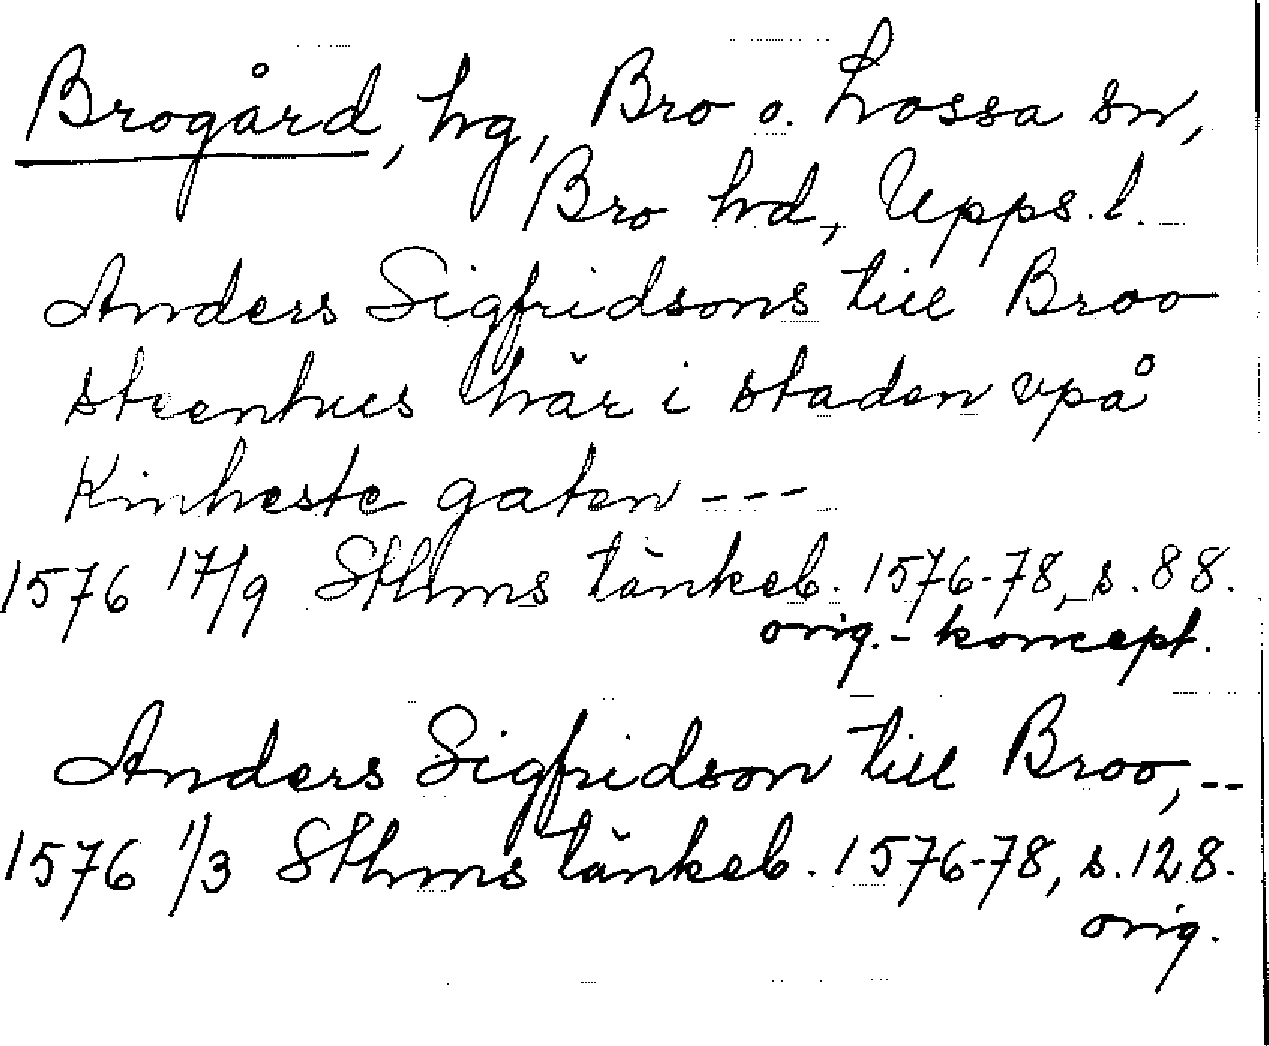 Brogård, hg, Bro o. Lossa sn,
Bro hd, Upps. l.
Anders Sigfridsons till Broo
steenhus här i staden vpå
Kinheste gaten ---
1576 17/9 Sthms tänkeb. 1576-78, s. 88.
orig.-koncept.
Anders Sigfridson till Broo, --
1576 1/3 Sthms tänkeb. 1576-78, s. 128.
orig.